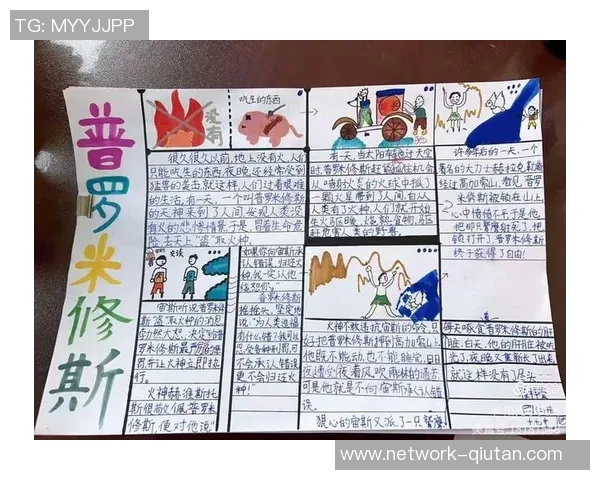 TG: MYYJJPP
普罗米修斯
没有
吃生的东西
很久很久以前,地上没有火,人们
只能吃生的东西,夜晚还经常受到
猛兽的袭击,就这样,人们过着艰难
的生活。有一天,一个叫普罗米修斯
的天神来到了人间,发现人类没
有火的悲惨情景,于是,冒着生命危
险,去天上"盗"取火种。
有一天,当太阳车
普罗米修斯
从
一颗火星带到了人间,自从
人类有了火种,人们就开始
生火取暖、烧熟食物、驱赶
危害人类的野兽。
许多年后的一天,一个
著名的大力士赫拉克
经过高加索山,看见普罗
米修斯被锁在山上,
心中愤愤不
他
锁打开了,普罗米修斯
终于获得了自由!
交谈
宙斯听说普罗米修
斯"盗"取火种的消息,
决定给
普罗米修斯最严厉的
罚并让火神立即执
行。
火神赫淮斯托
斯很敬佩普罗米
修斯,便对他说"
如果你向宙斯
承认错误,归还火
种,我一定让他
饶恕你。"
普罗米修斯
摇摇头,坚定地
说"为人类造福
有什么错?我可以
忍受各种
不会承认错误,
更不会归还火
种!"
火神不敢违抗宙斯的命令,只
好把普罗米修斯押到高加索山上。
他既不能动,也不能睡觉,日日
夜夜遭受风吹雨林的
可是他就是不向宙斯承认错
误。
狠心的宙斯又派了一只鹫鹰
每天啄食普罗米修斯的肝
脏,白天,他的肝脏被吃
光了,夜晚又重新长了出来,
就这样没有了尽头……
www.network-qiutan.com